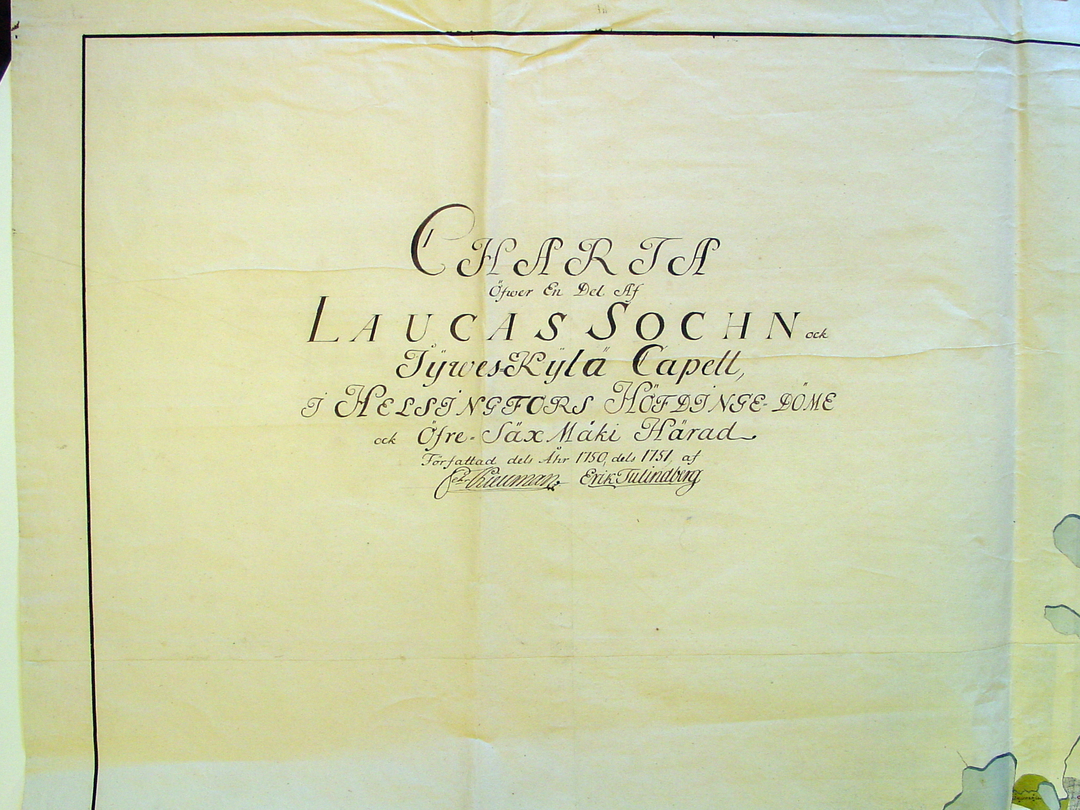 CHARTA
Öfwer En Del Af
LAUCAS SOCHN ock
Tÿwes-Kÿlä Capell,
i HELSINGFORS HÖFDINGE-DÖME
ock Öfre-Säxmäki Härad
Författad dels Åhr 1750, dels 1751 af
Erik Tulindberg